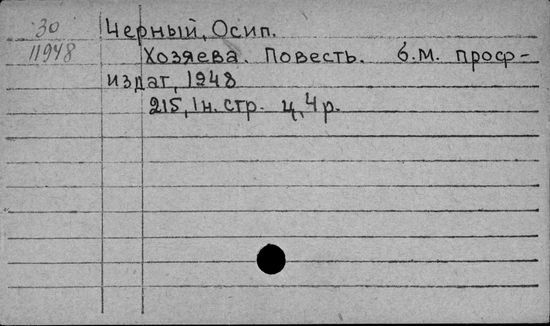 30
11948
Черный, Осип.
Хозяева. Повесть. б.м. проф-
издат, 1948
215, 1н. стр. ц. 4р.